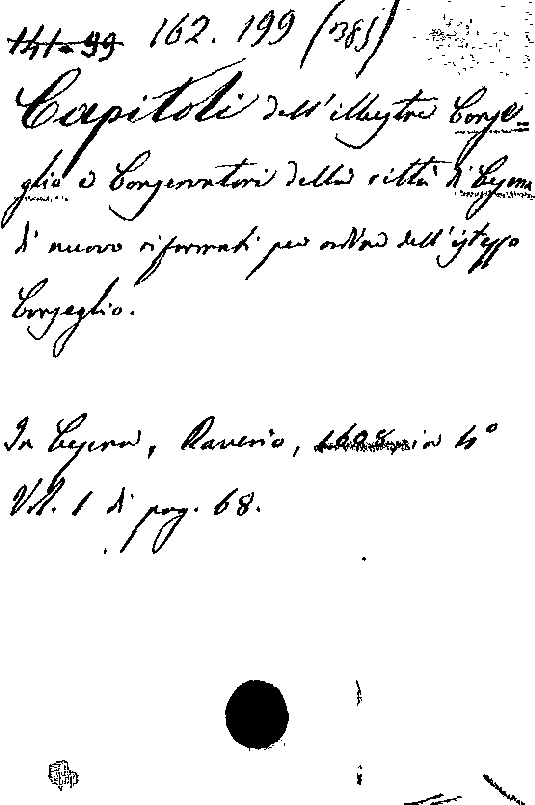 141-99 162. 199 (385)
Capitoli dell'illustre Conse=
glio e Conservatori della città di Cesena
di nuovo riformati per ordine dell'istesso
Conseglio.
In Cesena, Raverio, 1608, in 4°
Vol. 1 di pag. 68.